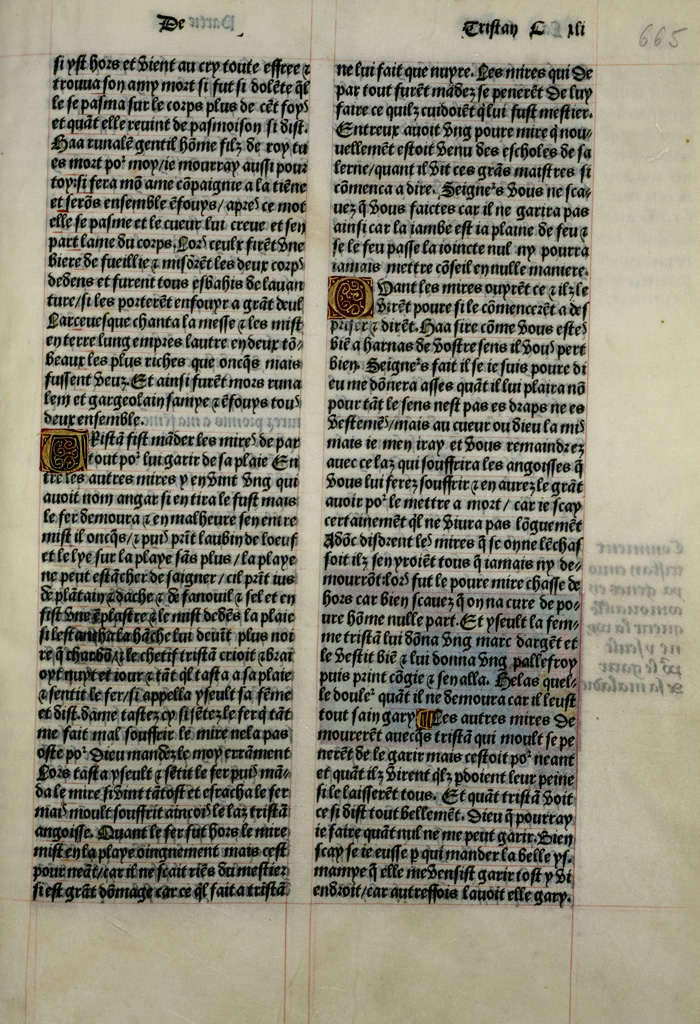 De
Tristan C xli
665
si yst hors et vient au cry toute effree ⁊
trouua son amy mort si fut si dolẽte q̃l
le se pasma sur le corps plus de cẽt foyꝰ
et quãt elle reuint de pasmoison si dist.
Haa runalẽ gentil hõme filz de roy tu
es mort poꝛ moy/ie mourray aussi pour
toy:si fera mõ ame cõpaignie a la tiẽne
et serõs ensemble ẽfouys/apres ce mot
elle se pasme et le cueur lui creue et sen
part lame du corps. Lors ceulx firẽt vne
biere de fueillie ⁊ misdrẽt les deux corps
dedens et furent tous esbahis de lauan
ture/si les porterẽt enfouyr a grãt deul
Larceuesque chanta la messe ⁊ les mist
en terre lung empres lautre en deux tõ-
beaux les plus riches que oncq̃s mais
fussent veuz. Et ainsi furẽt mors runa
lem et gargeolain sampe ⁊ ẽfouys tous
deux ensemble.
Ristã fist mãder les mires de par
tout poꝛ lui garir de sa plaie En
tre les autres mires y en vint vng qui
auoit nom angar si en tira le fust mais
le fer demoura ⁊ en malheure sen entre
mist il oncq̃s/⁊ puis prĩt laubin de loeuf
et le lye sur la playe sãs plus/la playe
ne peut estãcher de saigner/cil prĩt ius
de plãtain ⁊ dache ⁊ de fanouil ⁊ sel et en
fist vne ẽplastre ⁊ le mist dedẽs la plaie
si lestancha la hãche lui deuĩt plus noi
re q̃ charbõ/⁊ le chetif tristã crioit ⁊ brai
oyt nuyt et iour ⁊ tãt q̃l tasta a sa plaie
⁊ sentit le fer/si appella yseult sa fẽme
et dist.dame tastez cy si sẽtez le fer q̃ tãt
me fait mal souffrir le mire nela pas
oste poꝛ Dieu mandez le moy errãment
Lors tasta yseult ⁊ sẽtit le fer puis mã-
da le mire si vint tãtost et esracha le fer
mais moult souffrit aincois le laz tristã
angoisse. Quant le fer fut hors le mire
mist en la playe oingnement mais cest
pour neãt/car il ne scait riẽs du mestier
si est grãt dõmage car ce q̃l fait a tristã
ne lui fait que nuyre. Les mires qui de
par tout furẽt mãdez se penerẽt de luy
faire ce quilz cuidoiẽt q̃ lui fust mestier.
Entreux auoit vng poure mire q̃ nou-
uellement estoit venu des escholes de sa
lerne/quant il vit ces grãs maistres si
cõmenca a dire. Seignẽs vous ne sca-
uez q̃ vous faictes car il ne garira pas
ainsi car la iambe est ia plaine de feu ⁊
se le feu passe la ioincte nul ny pourra
iamais mettre cõseil en nulle maniere.
Quant les mires ouyrẽt ce ⁊ ilz le
virẽt poure si le cõmencerẽt a des
priser ⁊ dirẽt. Haa sire cõme vous estes
biẽ a harnas de vostre sens il vous pert
bien. Seignẽs fait il se ie suis poure di
eu me dõnera asses quãt il lui plaira nõ
pour tãt le sens nest pas es draps ne es
vestemẽs/mais au cueur ou dieu la mis
mais ie men iray et vous remaindrez
auec ce laz qui souffrira les angoisses q̃
vous lui ferez souffrir ⁊ en aurez le grãt
auoir poꝛ le mettre a mort/ car ie scay
certainemẽt q̃l ne viura pas lõguemẽt
Adõc disdrent les mires q̃ se on ne lẽchas
soit ilz sen yroiẽt tous q̃ iamais ny de-
mourrõt:lors fut le poure mire chasse de
hors car bien scauez q̃ on na cure de po-
ure hõme nulle part. Et yseult la fem-
me tristã lui dõna vng marc dargẽt et
le vestit biẽ ⁊ lui donna vng pallefroy
puis print cõgie ⁊ sen alla. Helas quel-
le douleꝛ quãt il ne demoura car il leust
tout sain gary Les autres mires de
mourerẽt auecq̃s tristã qui moult se pe
nerẽt de le garir mais cestoit poꝛ neant
et quãt ilz virent qlz pdoient leur peine
si le laisserẽt tous. Et quãt tristã voit
ce si dist tout bellemẽt. Dieu q̃ pourray
ie faire quãt nul ne me peut garir. Bien
scay se ie eusse p qui mander la belle ys-
mampe q̃ elle me vensist garir tost y vi
endroit/car autreffois lauoit elle gary.